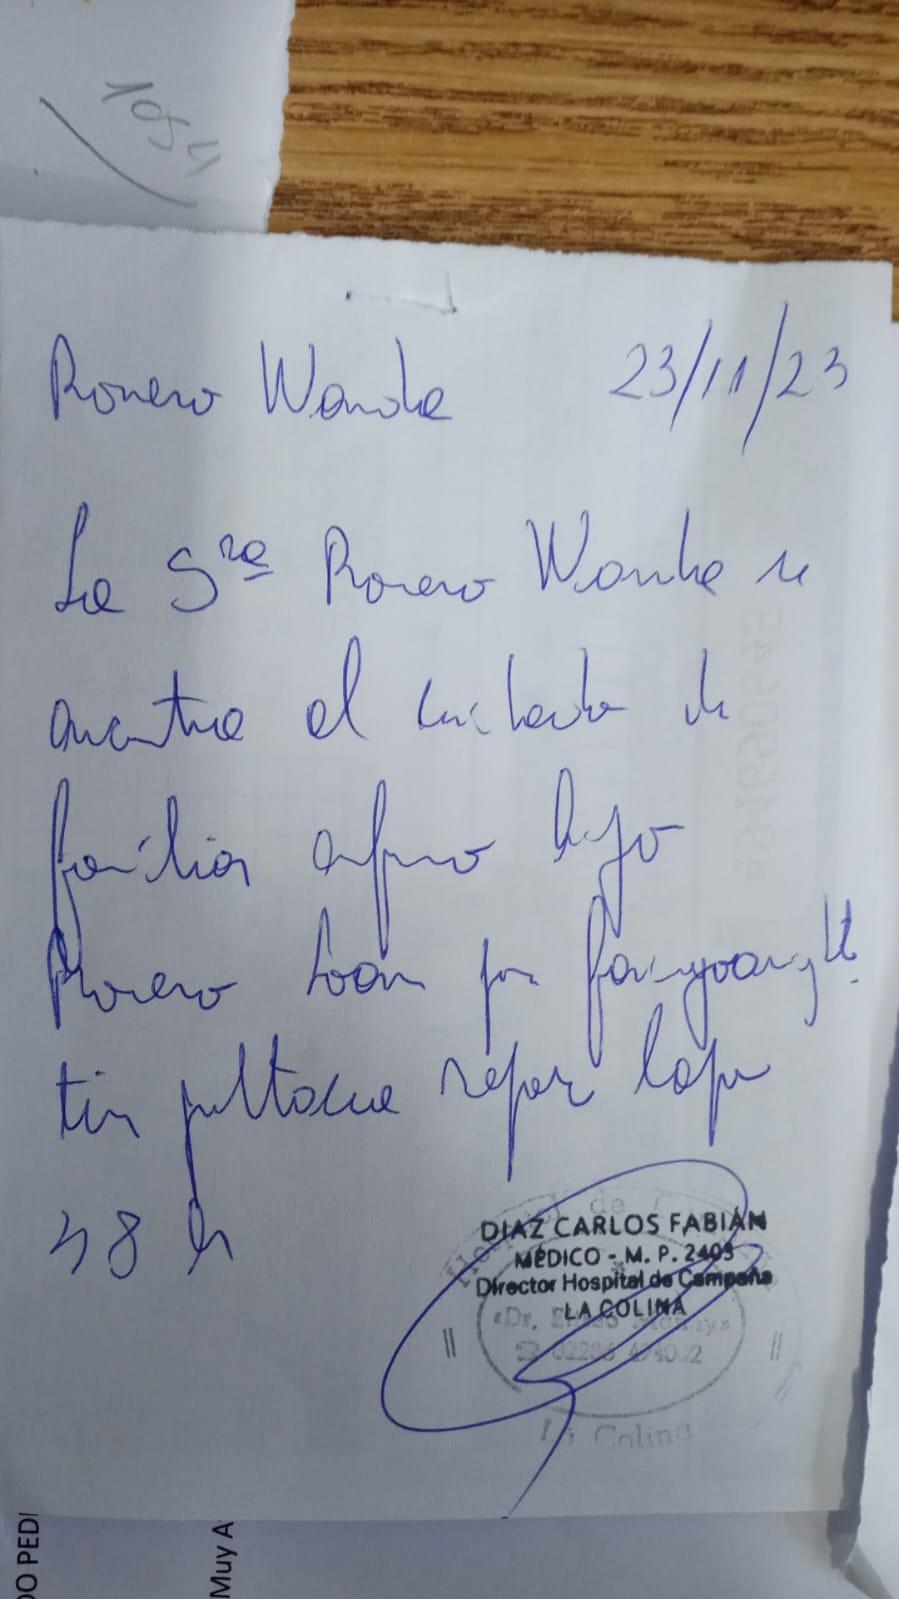 1054
Romero Wanda 23/11/23
La Sra Romero Wanda se
encuentra al cuidado de
familiar enfermo hijo
Romero Loan por faringoamig
tis pultacea reposo lapso
48 h
DIAZ CARLOS FABIÁN
MÉDICO - M. P. 2403
Director Hospital de Campaña
LA COLINA
«Dr.
La Colina
49469064
DO PEDI
Muy A